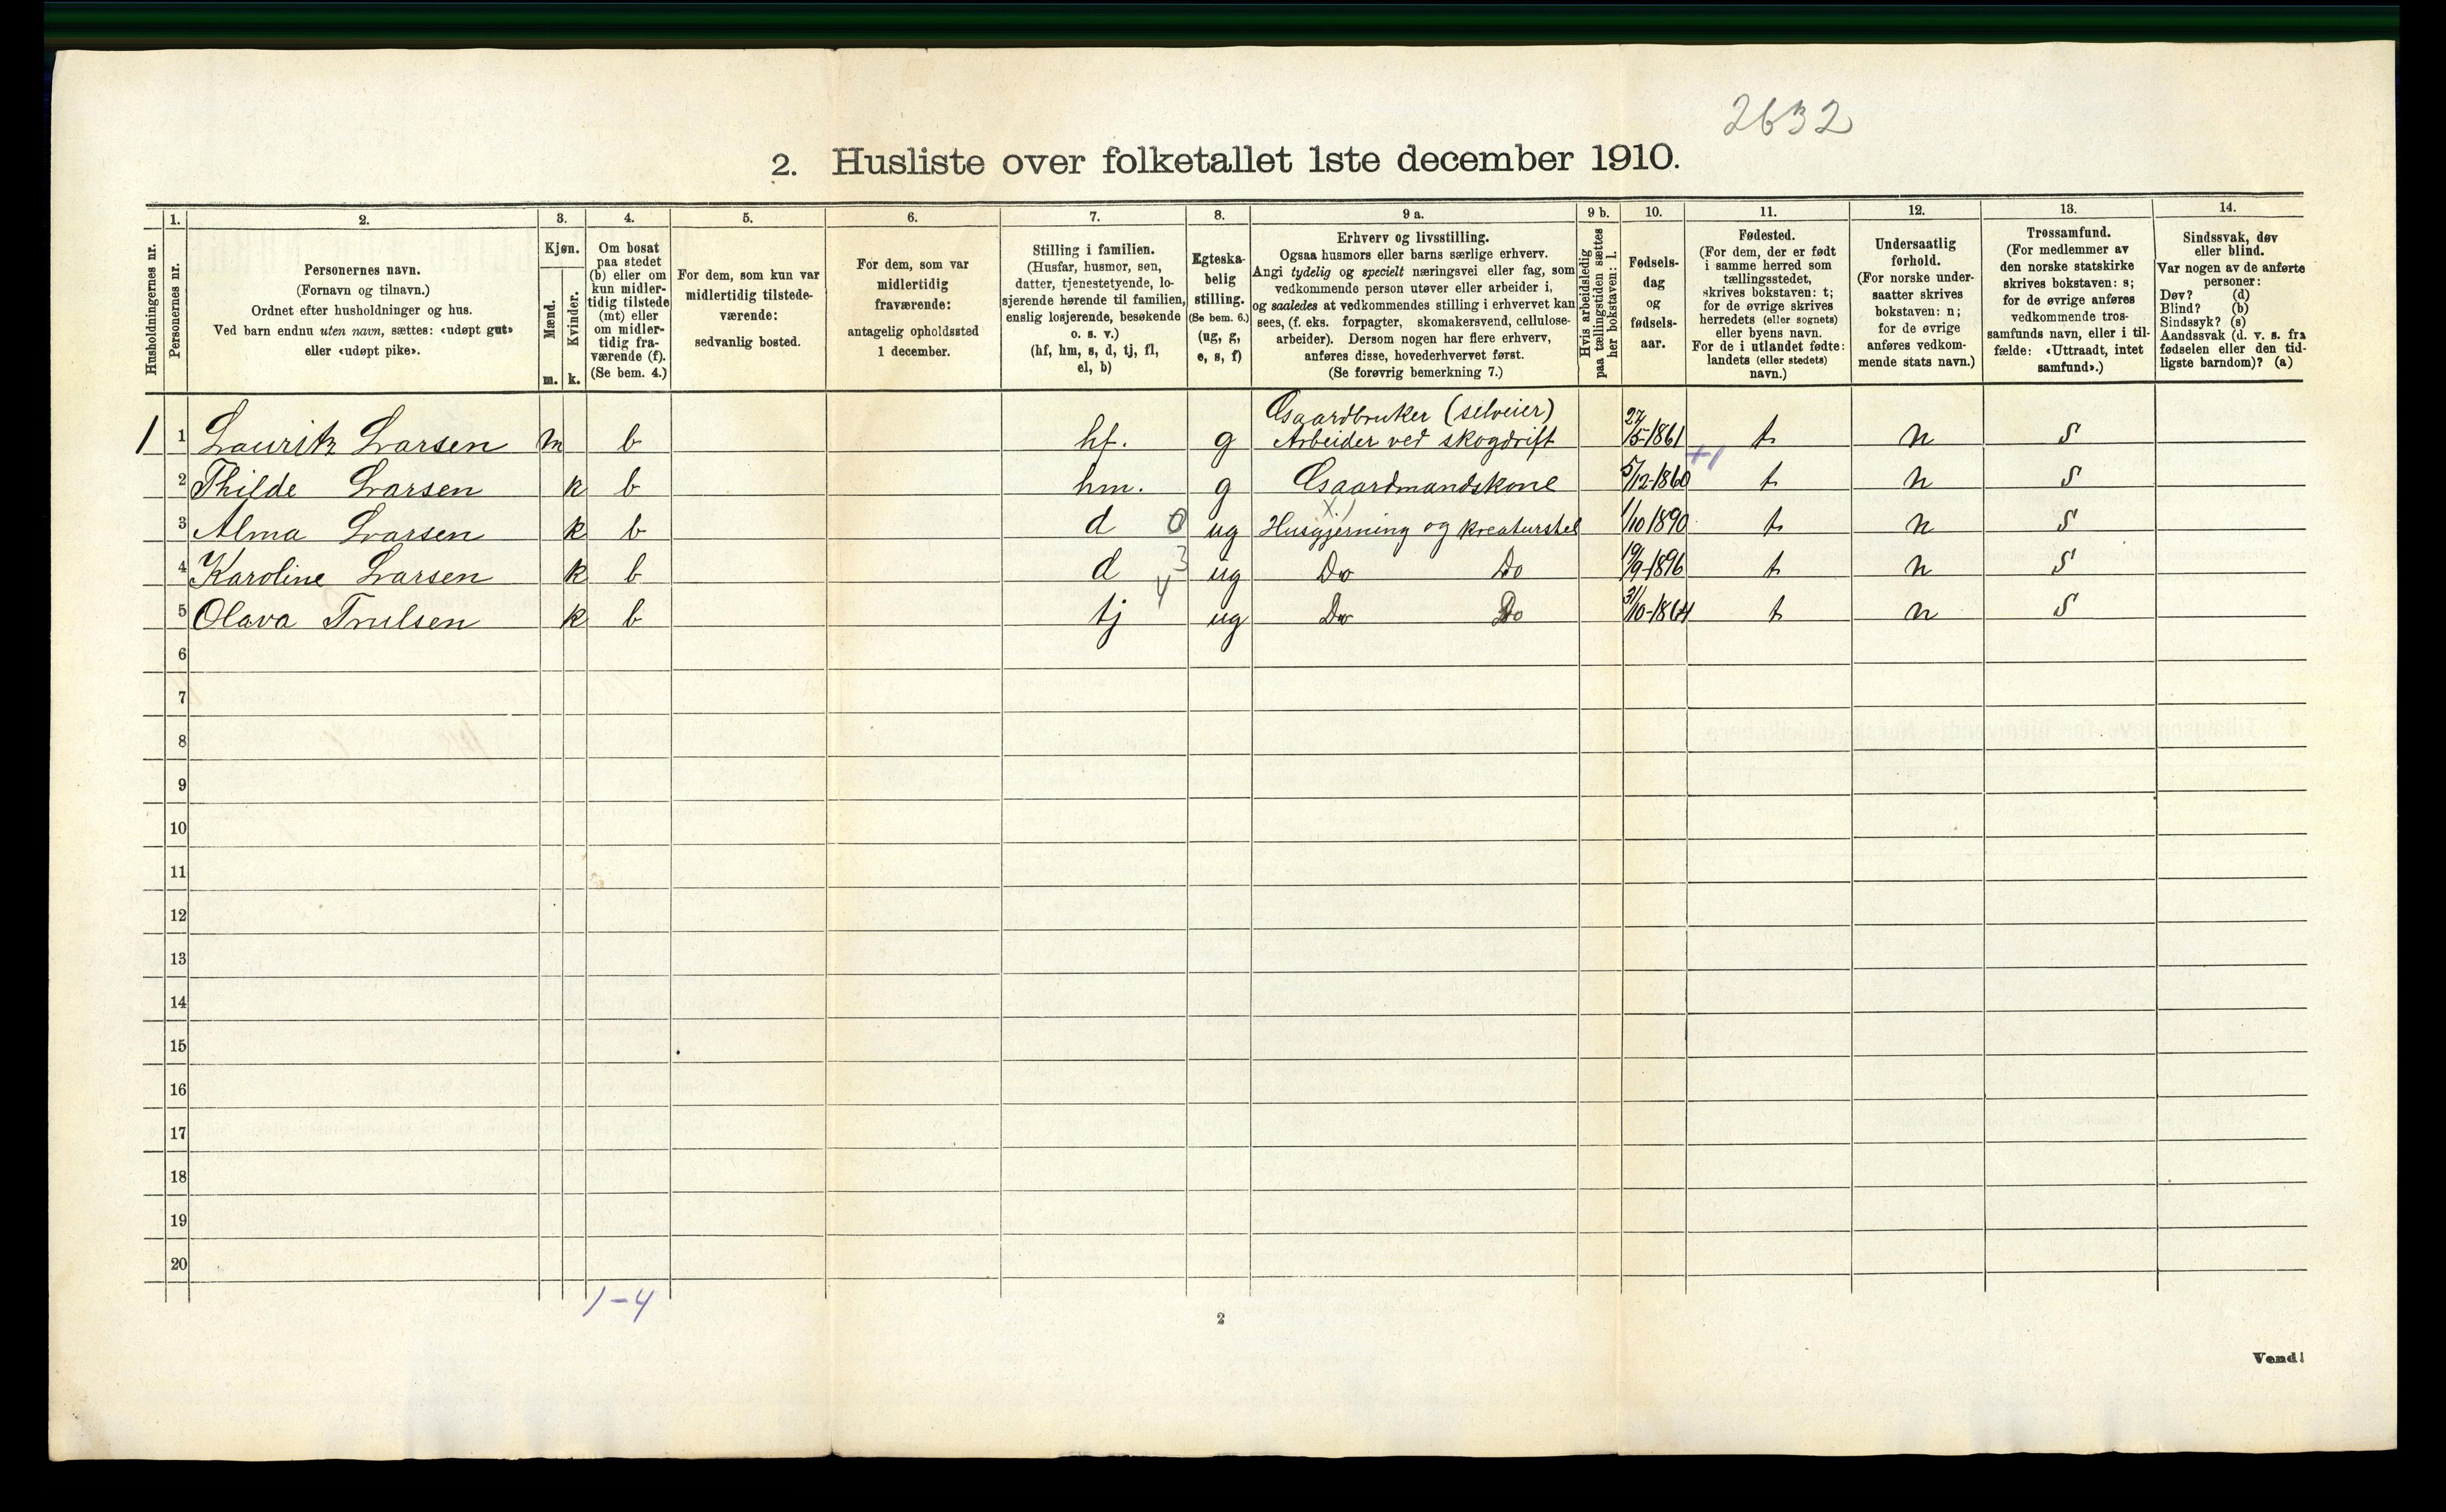 2632
2. Husliste over folketallet 1ste december 1910.
Husholdningernes nr.
1.
Personernes nr.
2.
Personernes navn.
(Fornavn og tilnavn.)
Ordnet efter husholdninger og hus.
Ved barn endnu uten navn, sættes: «udøpt gut»
eller «udøpt pike».
3.
Kjøn.
Mænd.
Kvinder.
m. k.
4.
Om bosat
paa stedet
(b) eller om
kun midler-
tidig tilstede
(mt) eller
om midler-
tidig fra-
værende (f).
(Se bem. 4.)
5.
For dem, som kun var
midlertidig tilstede-
værende:
sedvanlig bosted.
6.
For dem, som var
midlertidig
fraværende:
antagelig opholdssted
1 december.
7.
Stilling i familien.
(Husfar, husmor, søn,
datter, tjenestetyende, lo-
sjerende hørende til familien,
enslig losjerende, besøkende
o. s. v.)
(hf, hm, s, d, tj, fl,
el, b)
8.
Egteska-
belig
stilling.
(Se bem. 6.)
(ug, g,
e, s, f)
9 a.
Erhverv og livsstilling.
Ogsaa husmors eller barns særlige erhverv.
Angi tydelig og specielt næringsvei eller fag, som
vedkommende person utøver eller arbeider i,
og saaledes at vedkommendes stilling i erhvervet kan
sees, (f. eks. forpagter, skomakersvend, cellulose-
arbeider). Dersom nogen har flere erhverv,
anføres disse, hovederhvervet først.
(Se forøvrig bemerkning 7.)
9 b.
Hvis arbeidsledig
paa tællingstiden sættes
her bokstaven: l.
10.
Fødsels-
dag
og
fødsels-
aar.
11.
Fødested.
(For dem, der er født
i samme herred som
tællingsstedet,
skrives bokstaven: t;
for de øvrige skrives
herredets (eller sognets)
eller byens navn.
For de i utlandet fødte:
landets (eller stedets)
navn.)
12.
Undersaatlig
forhold.
(For norske under-
saatter skrives
bokstaven: n;
for de øvrige
anføres vedkom-
mende stats navn.)
13.
Trossamfund.
(For medlemmer av
den norske statskirke
skrives bokstaven: s;
for de øvrige anføres
vedkommende tros-
samfunds navn, eller i til-
fælde: «Uttraadt, intet
samfund».)
14.
Sindssvak, døv
eller blind.
Var nogen av de anførte
personer:
Døv? (d)
Blind? (b)
Sindssyk? (s)
Aandssvak (d. v. s. fra
fødselen eller den tid-
ligste barndom)? (a)
Gaardbruker (selveier)
1 1 Lauritz Larsen m b hf. g Arbeider ved skogdrift 27/5-1861 t n s
+1
2 Thilde Larsen k b hm. g Gaardmandskone 5/12-1860 t n s
x)
3 Alma Larsen k b d 0 ug Husgjerning og kreaturstel 1/10 1890 t n s
4 Karoline Larsen k b d 3 ug Do Do 19/9-1896 t n s
5 Olava Trulsen k b tj 4 ug Do Do 31/10-1864 t n s
6
7
8
9
10
11
12
13
14
15
16
17
18
19
20
1-4
2
Vend!